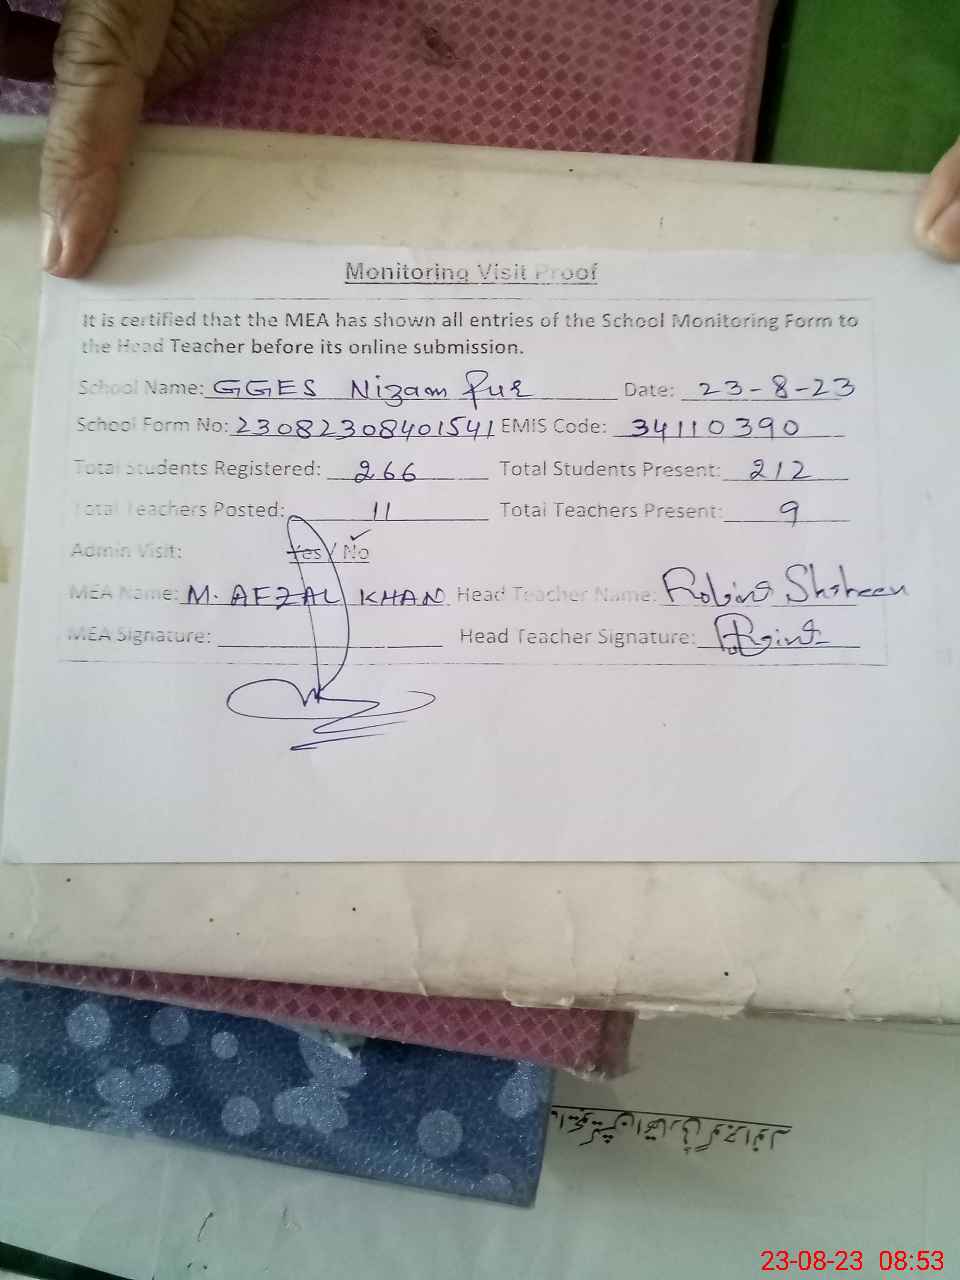 Monitoring Visit Proof
It is certified that the MEA has shown all entries of the School Monitoring Form to
the Head Teacher before its online submission.
School Name: GGES Nizam Pur Date: 23-8-23
School Form No: 23082308401541 EMIS Code: 34110390
Total Students Registered: 266 Total Students Present: 212
Total Teachers Posted: 11 Total Teachers Present: 9
Admin Visit: Yes / No ✓
MEA Name: M. AFZAL KHAN Head Teacher Name: Robina Shaheen
MEA Signature: Head Teacher Signature: Robina
23-08-23 08:53